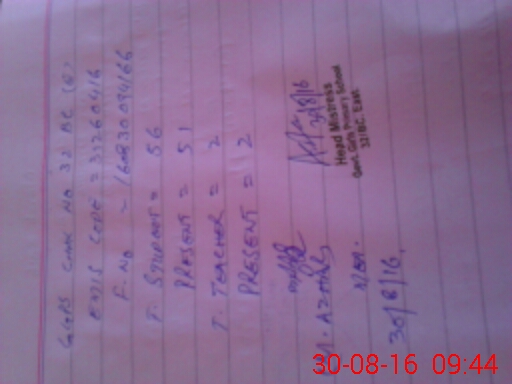 GGPS CHAK NO 32 BC (E)
EMIS CODE = 31260416
T. STUDENT = 56
PRESENT = 51
T. TEACHER = 2
PRESENT = 2
30/8/16
Head Mistress
Govt. Girls Primary School
32/BC. East
30/8/16
30-08-16 09:44